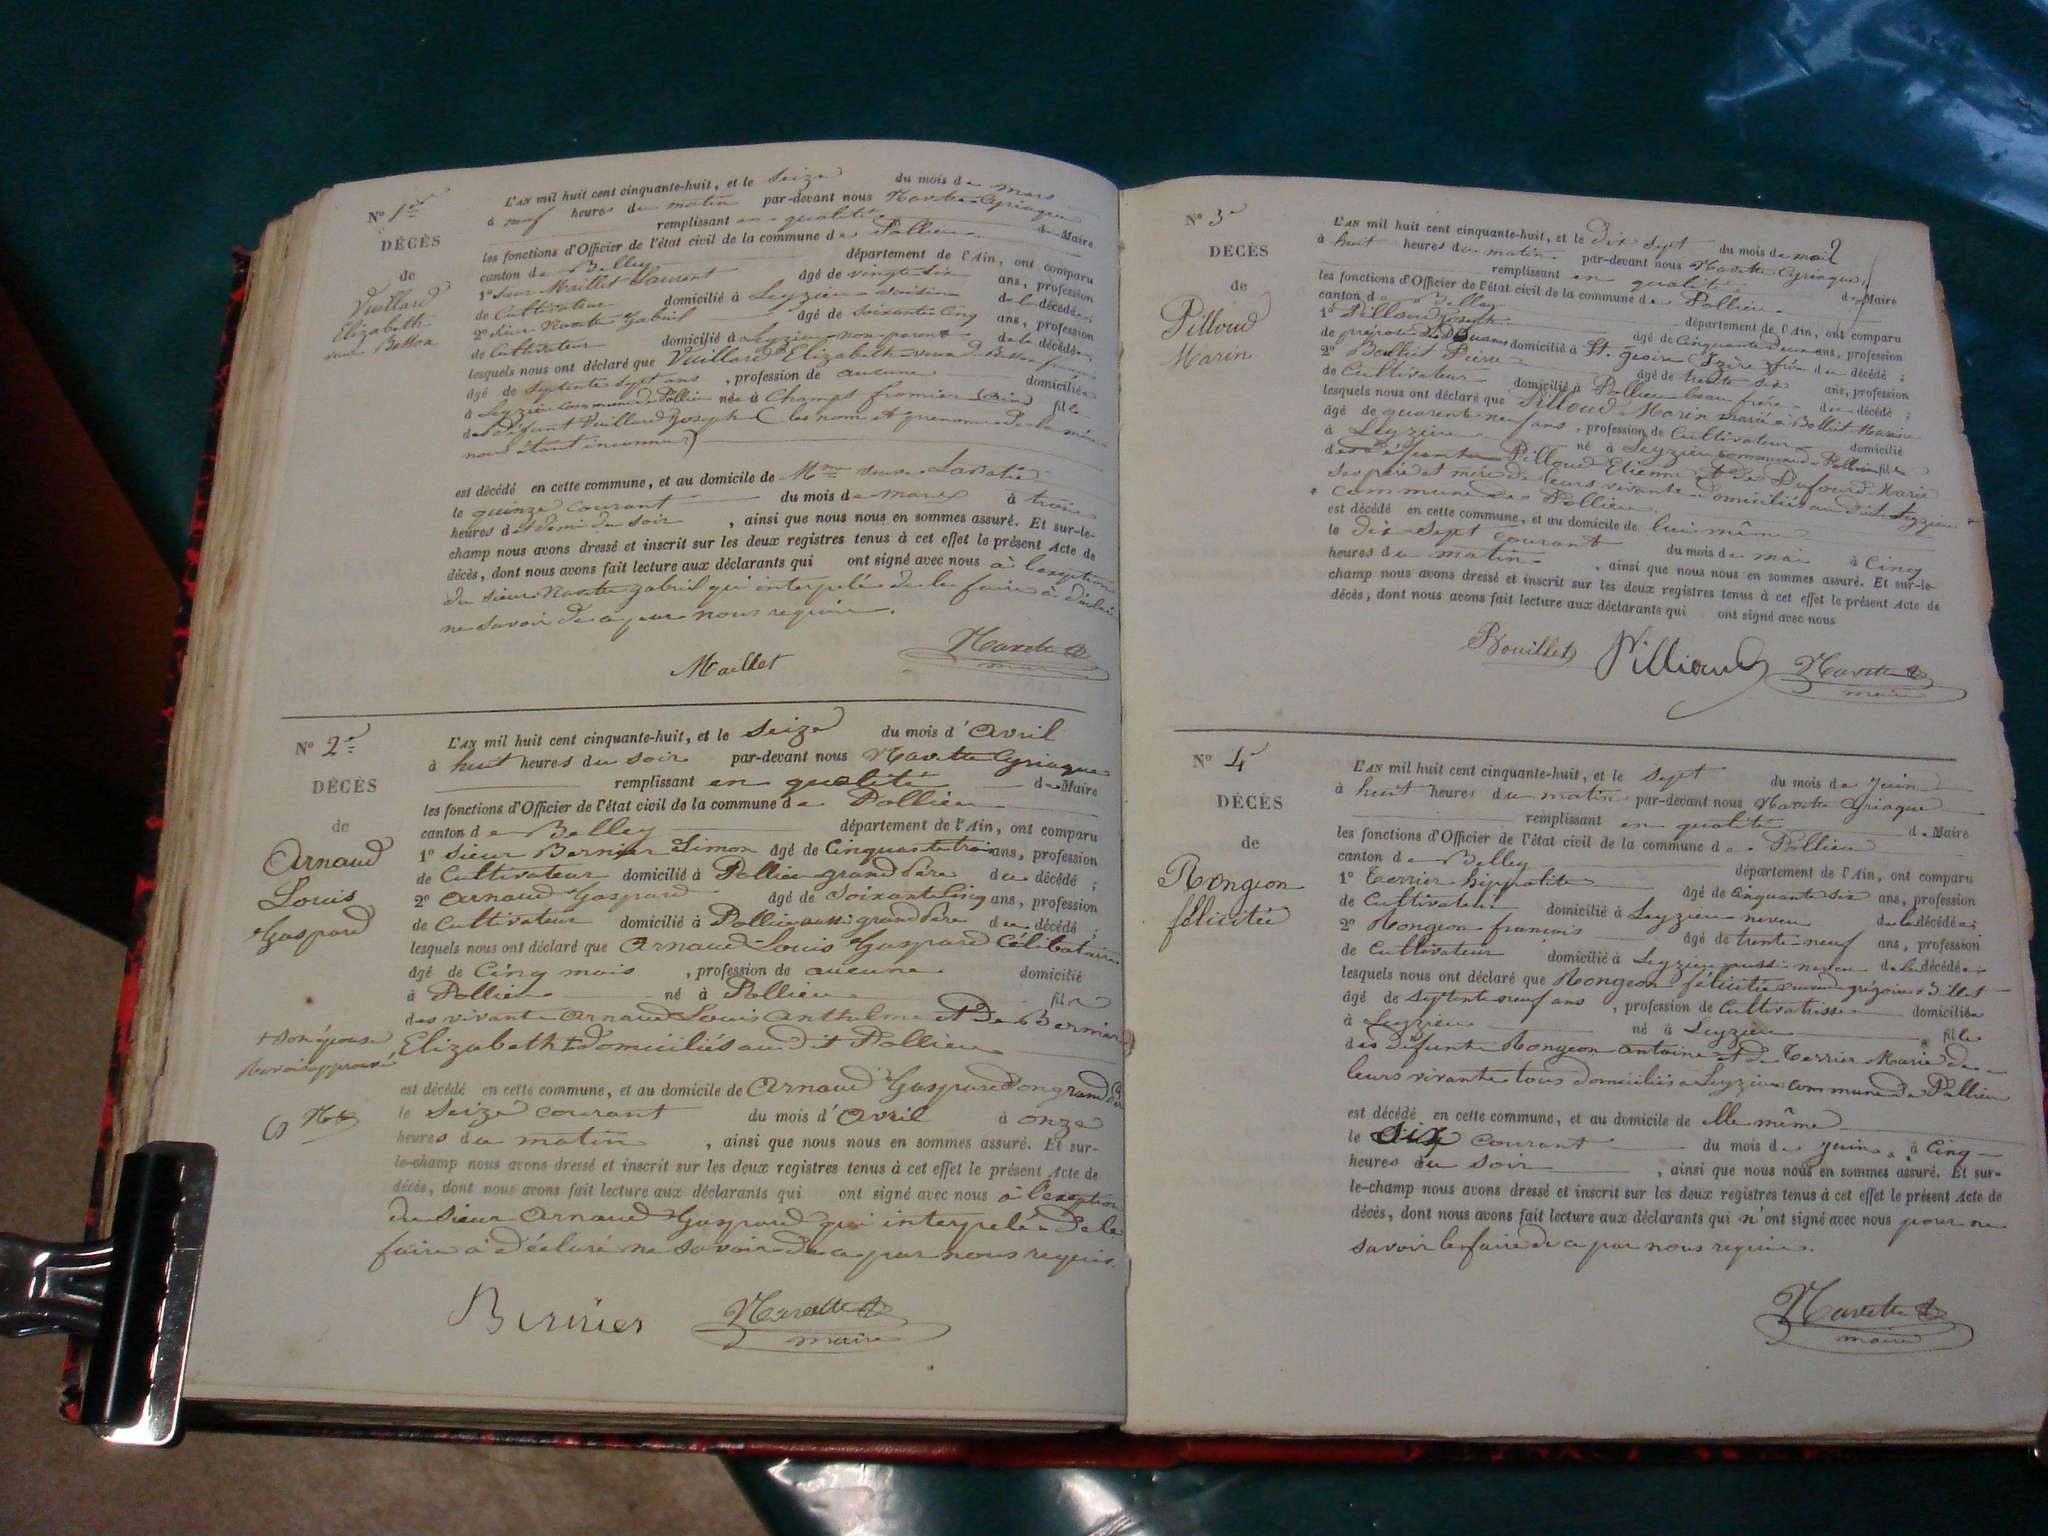 N° 1er
DÉCÈS
de
Vuillard
Elizabeth
veuve Besson
L'AN mil huit cent cinquante-huit, et le seize du mois de mars
à neuf heures du matin par-devant nous Navette Cyriaque
remplissant en qualité de Maire
les fonctions d'Officier de l'état civil de la commune de Pollieu
canton de Belley département de l'Ain, ont comparu
1° sieur Maillet Laurent âgé de vingt six ans, profession
de Cultivateur domicilié à Leyzieu voisin de la décédée ;
2° sieur Navette Gabriel âgé de soixante cinq ans, profession
de Cultivateur domicilié à Leyzieu non parent de la décédée ;
lesquels nous ont déclaré que Vuillard Elizabeth veuve de Besson françois
âgé de septente sept ans , profession de aucune domiciliée
à Leyzieu commune de Pollieu née à Champt fromier (Ain) fille
de défunt Vuillard Joseph (les nom et prenoms de la mère
nous étant inconnus)
est décédé en cette commune, et au domicile de Mme veuve
le quinze courant du mois de mars à trois
heures et demi du soir , ainsi que nous nous en sommes assuré. Et sur-le-
champ nous avons dressé et inscrit sur les deux registres tenus à cet effet le présent Acte de
décès, dont nous avons fait lecture aux déclarants qui ont signé avec nous à l'exeption
du sieur Navette gabriel qui interpelé de le faire à déclaré
ne savoir de ce par nous requis.
Maillet Navette
maire
N° 2e
DÉCÈS
de
Arnaud
Louis
Gaspard
L'AN mil huit cent cinquante-huit, et le seize du mois d'Avril
à huit heures du soir par-devant nous Navette Cyriaque
remplissant en qualité de Maire
les fonctions d'Officier de l'état civil de la commune de Pollieu
canton de Belley département de l'Ain, ont comparu
1° sieur Bernier Simon âgé de Cinquante trois ans, profession
de Cultivateur domicilié à Pollieu grand Père du décédé ;
2° Arnaud Gaspard âgé de Soixante Cinq ans, profession
de Cultivateur domicilié à Pollieu aussi grand Père du décédé ;
lesquels nous ont déclaré que Arnaud Louis Gaspard Célibataire
âgé de Cinq mois , profession de aucune domicilié
à Pollieu né à Pollieu fils
des vivants Arnaud Louis Anthelme et De Bernier
Elizabeth + domiciliés au dit Pollieu
+ son épouse
Renvoi approuvé
est décédé en cette commune, et au domicile de Arnaud Gaspard son grand Père
le seize courant du mois d'Avril à onze
heures du matin , ainsi que nous nous en sommes assuré. Et sur-
le-champ nous avons dressé et inscrit sur les deux registres tenus à cet effet le présent Acte de
décès, dont nous avons fait lecture aux déclarants qui ont signé avec nous à l'exeption
du sieur Arnaud Gaspard qui interpelé de le
faire à déclaré ne savoir de ce par nous requis.
Bernier Navette
maire
N° 3e
DÉCÈS
de
Pilloud
Marin
L'AN mil huit cent cinquante-huit, et le Dix sept du mois de mai
à huit heures du matin par-devant nous Navette Cyriaque
remplissant en qualité de Maire
les fonctions d'Officier de l'état civil de la commune de Pollieu
canton de Belley département de l'Ain, ont comparu
1° Pilloud Joseph âgé de Cinquante deux ans, profession
de préposé des Douanes domicilié à St. geoire (Isère) frère du décédé ;
2° Bolliet Pierre âgé de trente six ans, profession
de Cultivateur domicilié à Pollieu beau frère du décédé ;
lesquels nous ont déclaré que Pilloud Marin marié à Bolliet
âgé de quarente neuf ans , profession de Cultivateur domicilié
à Leyzieu né à Leyzieu commune de Pollieu fils
des défunts Pilloud Etienne et de Dufourd Marie
ses père et mère de leurs vivants domiciliés au dit Leyzieu
commune de Pollieu
est décédé en cette commune, et au domicile de lui même
le dix sept courant du mois de mai à Cinq
heures du matin , ainsi que nous nous en sommes assuré. Et sur-le-
champ nous avons dressé et inscrit sur les deux registres tenus à cet effet le présent Acte de
décès, dont nous avons fait lecture aux déclarants qui ont signé avec nous
Bouillet Pilliaud Navette
maire
N° 4e
DÉCÈS
de
Rongeon
félicitée
L'AN mil huit cent cinquante-huit, et le sept du mois de Juin
à huit heures du matin par-devant nous Navette Cyriaque
remplissant en qualité de Maire
les fonctions d'Officier de l'état civil de la commune de Pollieu
canton de Belley département de l'Ain, ont comparu
1° Terrier hippolite âgé de Cinquante six ans, profession
de Cultivateur domicilié à Leyzieu neveu de la décédée ;
2° Rongeon françois âgé de trente neuf ans, profession
de Cultivateur domicilié à Leyzieu aussi neveu de la décédée
lesquels nous ont déclaré que Rongeon félicitée veuve de grégoire Billet
âgé de septente neuf ans , profession de Cultivatrisse domiciliée
à Leyzieu né à Leyzieu fille
des défunts Rongeon Antoine et de Terrier Marie de
leurs vivants tous domiciliés à Leyzieu commune de Pollieu
est décédé en cette commune, et au domicile de elle même
le six courant du mois de Juin à Cinq
heures du soir , ainsi que nous nous en sommes assuré. Et sur-
le-champ nous avons dressé et inscrit sur les deux registres tenus à cet effet le présent Acte de
décès, dont nous avons fait lecture aux déclarants qui n'ont signé avec nous pour ne
savoir le faire de ce par nous requis.
Navette
maire